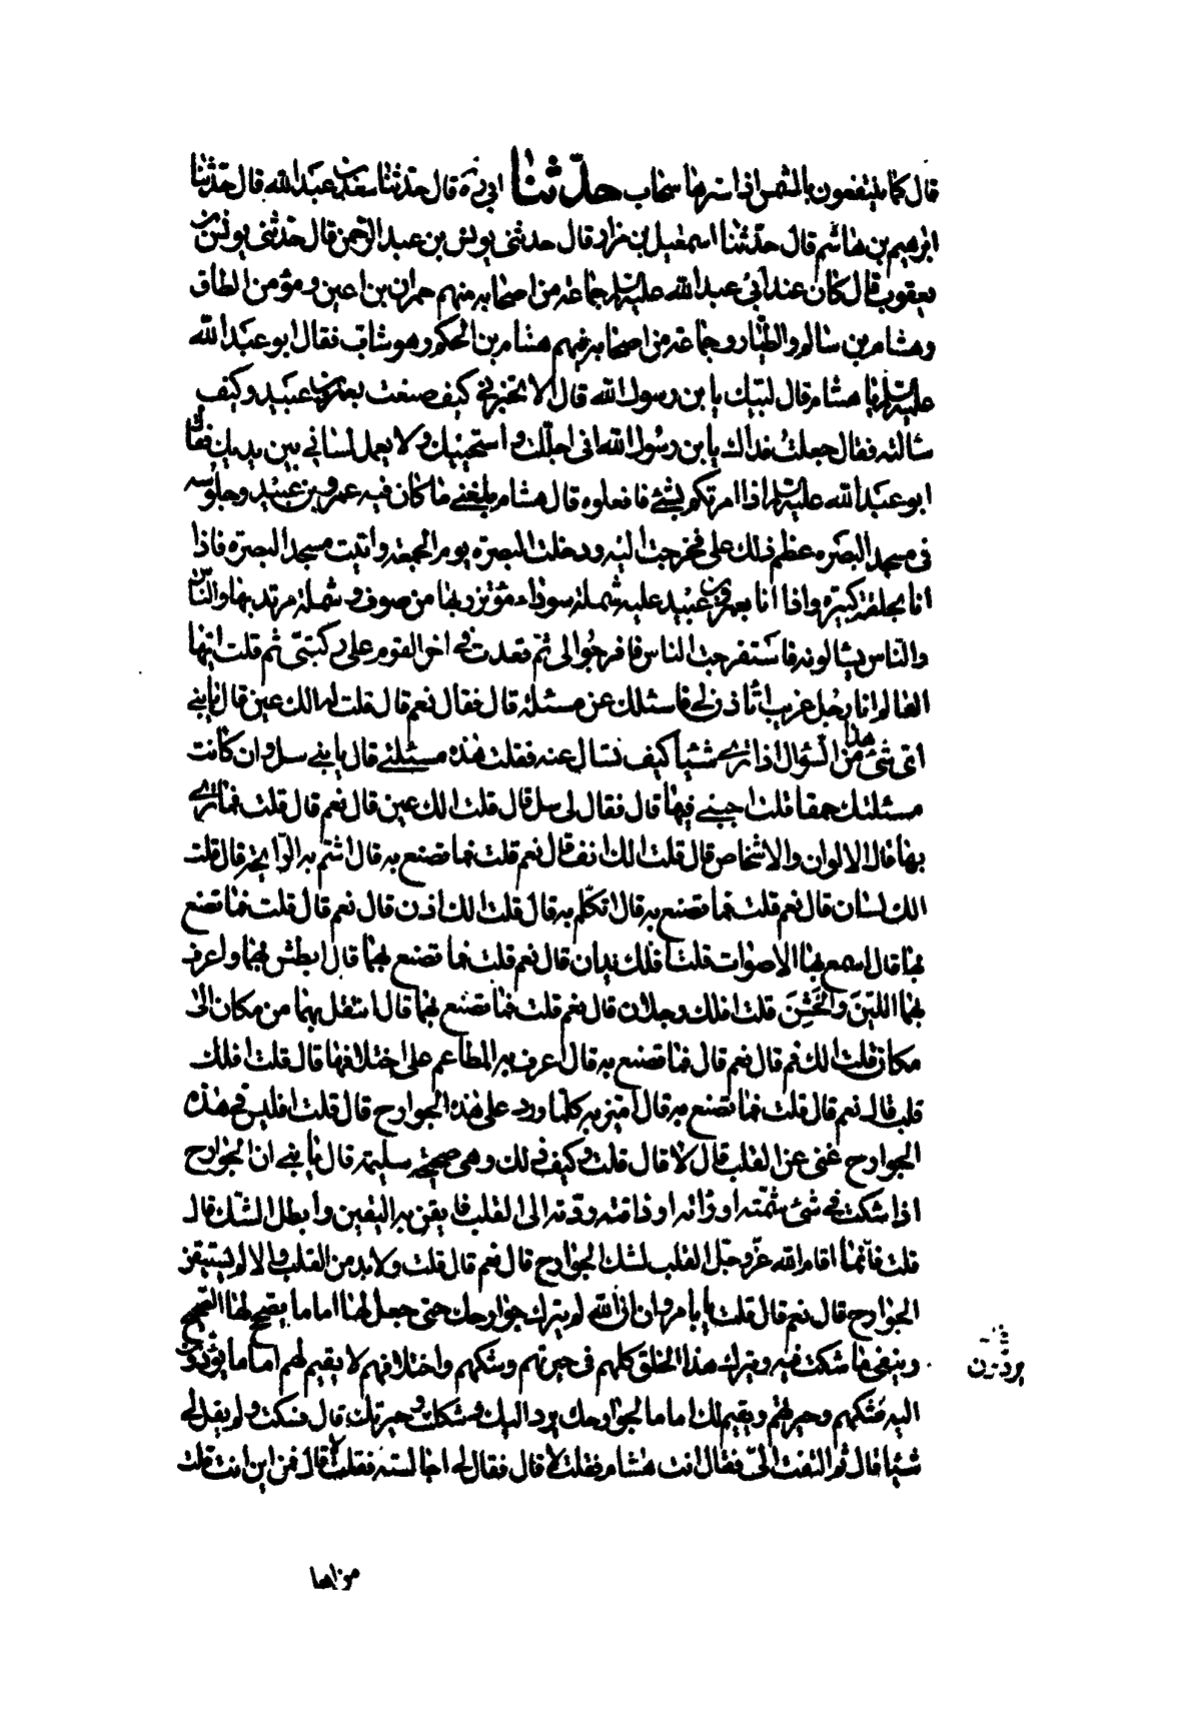 قال كما ينتفعون بالشمس اذا سترها سحاب حدّثنا ابي ره قال حدّثنا سعد بن عبد الله قال حدّثنا
ابرهيم بن هاشم قال حدّثنا اسمعيل بن مرار قال حدثنى يونس بن عبد الرحمن قال حدّثنى يونس بن
يعقوب قال كان عند ابي عبد الله عليه السلم جماعة من اصحابه منهم حمران بن اعين ومؤمن الطاق
وهشام بن سالم والطيّار وجماعة من اصحابه فيهم هشام بن الحكم وهو شاب فقال ابو عبد الله
عليه السلم يا هشام قال لبّيك يا بن رسول الله قال الا تخبرني كيف صنعت بعمرو بن عبيد وكيف
سالته فقال جعلت فداك يا بن رسول الله انى اجلّك واستحييك ولا يعمل لسانى بين يديك فقال
ابو عبد الله عليه السلم اذا امرتكم بشئ فافعلوه قال هشام بلغنى ما كان فيه عمرو بن عبيد وجلوسه
فى مسجد البصره عظم ذلك على فخرجت اليه ودخلت البصرة يوم الجمعة واتيت مسجد البصرة فاذا
انا بحلقة كبيرة واذا انا بعمرو بن عبيد عليه شملة سوداء مؤتزر بها من صوف وشملة مرتد بها والنّاس
والناس يسالونه فاستفرجت الناس فافرجوا لى ثم قعدت فى اخر القوم على ركبتى ثم قلت ايّها
العالم انا رجل غريب اتاذن لى فاسئلك عن مسئلة قال فقال نعم قال قلت له الك عين قال يا بنى
اى شئ هذا من السّؤال اذا ترى شيئا كيف تسال عنه فقلت هذه مسئلتى قال يا بنى سل وان كانت
مسئلتك حمقا قلت اجبنى فيها قال فقال لى سل قال قلت الك عين قال نعم قال قلت فما ترى
بها قال الالوان والاشخاص قال قلت الك انف قال نعم قلت فما تصنع به قال اشتم به الرّايحة قال قلت
الك لسان قال نعم قلت فما تصنع به قال اتكلّم به قال قلت الك اذن قال نعم قال قلت فما تصنع
بها قال اسمع بها الاصوات قلت افلك يدان قال نعم قلت فما تصنع بهما قال ابطش بهما واعرف
بهما اللين والخشن قلت افلك رجلان قال نعم قلت فما تصنع بهما قال انتقل بهما من مكان الى
مكان قلت الك فم قال نعم قال فما تصنع به قال اعرف به المطاعم على اختلافها قال قلت افلك
قلب قال نعم قال قلت فما تصنع به قال اميز به كلما ورد على هذه الجوارح قال قلت افليس فى هذه
الجوارح غنى عن القلب قال لا قال قلت وكيف ذلك وهى صحيحة سليمة قال يا بنى ان الجوارح
اذا شكت فى شئ شمّته او راته او ذاقته ردّته الى القلب فايقن به اليقين وابطل الشك قال
قلت فانّما اقام الله عزّ وجلّ القلب لشك الجوارح قال نعم قال قلت ولابد من القلب والا لم يستيقن
الجوارح قال نعم قال قلت يا با مروان ان الله لم يترك جوارحك حتى جعل لها اماما يصحح لها الصحيح
وينفى ما شكت فيه ويترك هذا الخلق كلهم فى حيرتهم وشكهم واختلافهم لا يقيم لهم اماما يؤدّون
يردّون
اليه شكهم وحيرتهم ويقيم لك اماما لجوارحك يرد اليك شكك وحيرتك قال فسكت ولم يقل لى
شيئا قال ثم التفت الىّ فقال انت هشام فقلت لا قال فقال لى اجالسته فقلت لا قال فمن اين انت قلت
من اهل